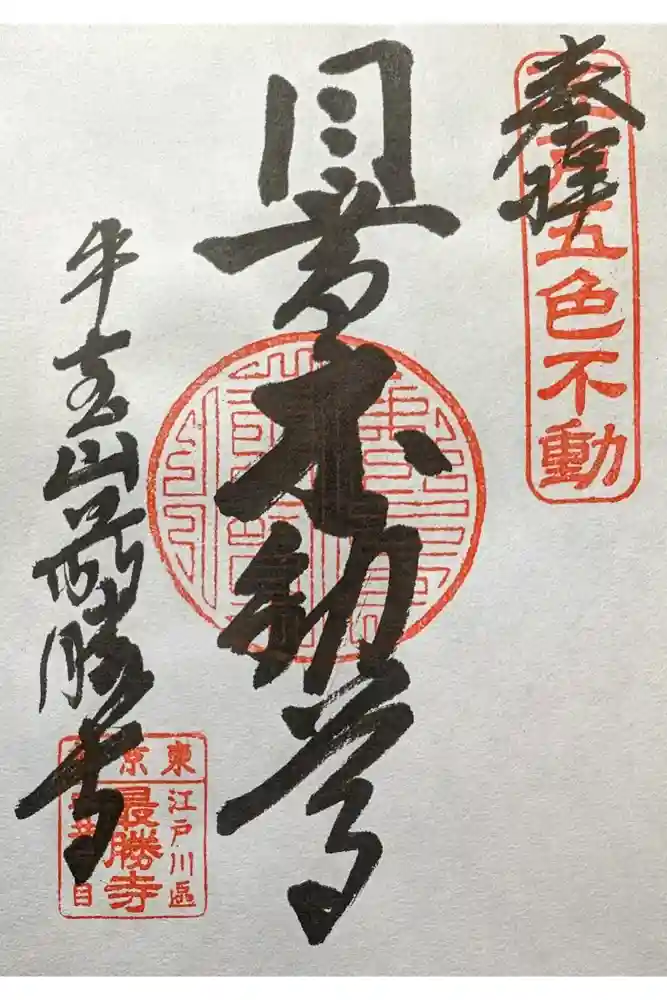 奉拝
五色不動
目黄不動尊
牛宝山最勝寺
東京
江戸川區
最勝寺
目